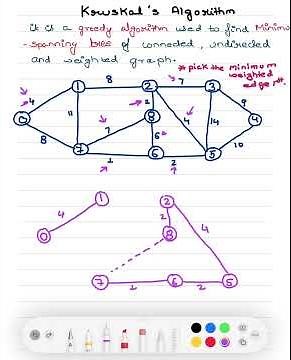 Kruskal's Algorithm
it is a greedy algorithm used to find Minimu
- spanning trees of connected, undirected
and weighted graph.
* pick the minimum
weighted
edge
1 8 2 7 3
4 9
0 11 2 8 4 14 4
7
8 6 10
7 1 6 2 5
1 2
4 2 4
0 8
7 1 6 2 5